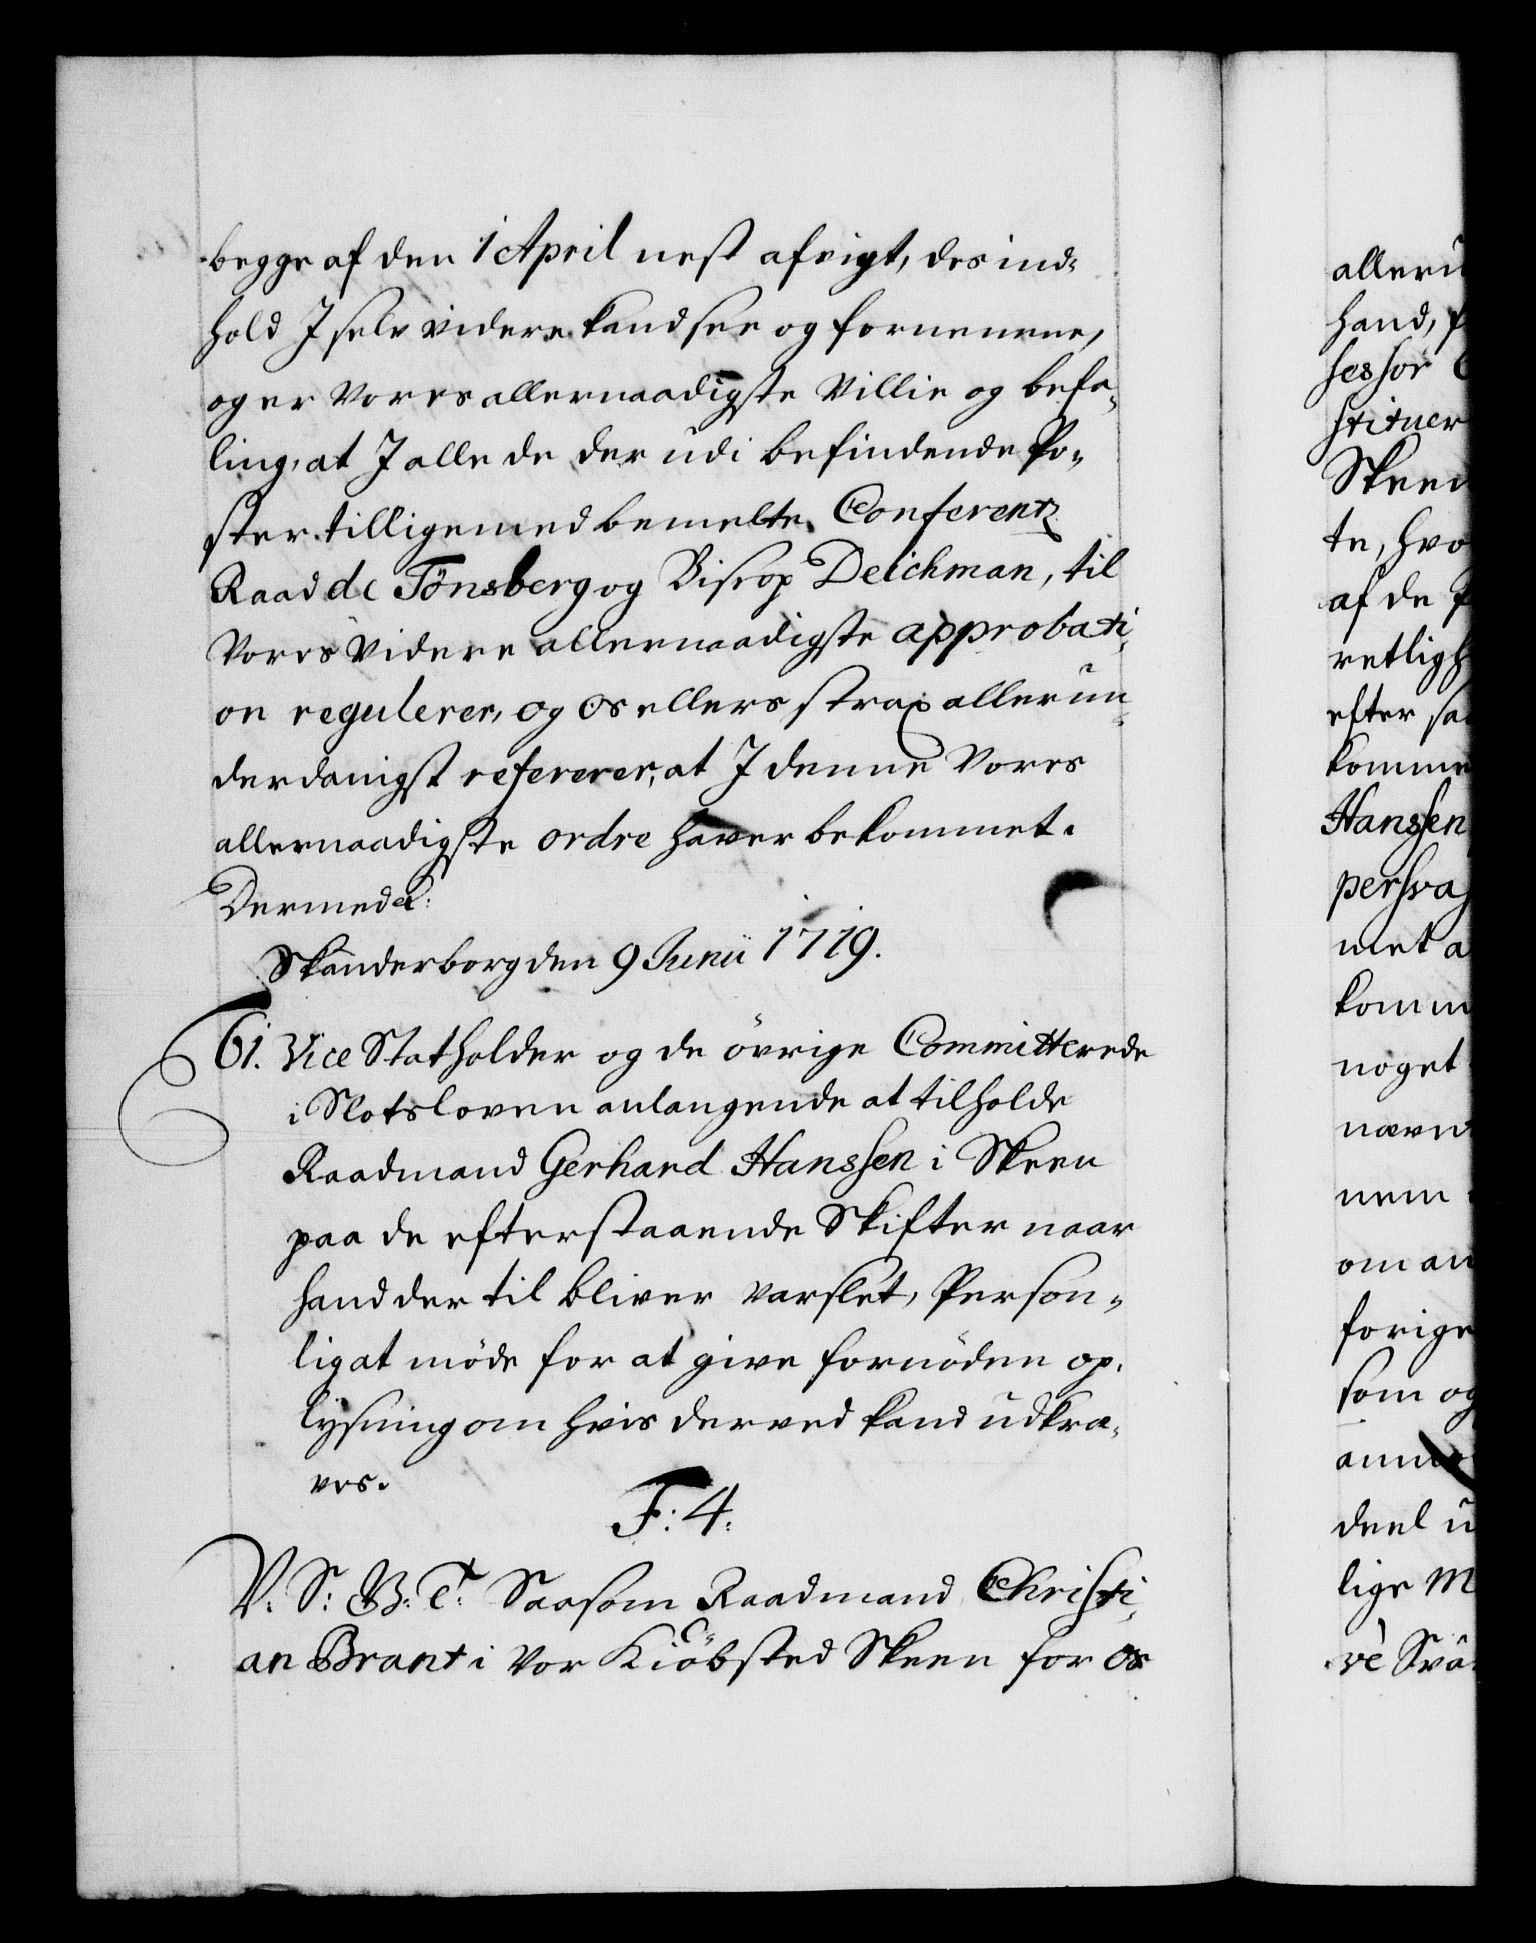 begge af den 1 April nest afvigt, des ind-
hold J selv videre kand see og fornemme,
og er Vores allernaadigste Villie og befa-
ling, at J alle de der udi befindende Po-
ster tilligemed bemelte Conferentz
Raad de Tönsberg og Biscop Deichman, til
Vores videre allernaadigste approbati-
on regulerer, og os ellers strax allerun-
derdanigst refererer, at J denne Vores
allernaadigste ordre haver bekommet.
Dermed &:
Skanderborg den 9 Junii 1719.
61. Vice Statholder og de övrige Committerede
i Slotsloven anlangende at tilholde
Raadmand Gerhard Hanssen i Skeen
paa de efterstaaende Skifter naar
hand der til bliver varslet, Person-
lig at möde for at give fornöden op-
lysning om hvis derved kand udkræ-
ves.
F: 4.
V. S: B: T: Saasom Raadmand Christi-
an Brant i Vor Kiöbsted Skeen for os
alleru
hand, f
sessor
stituer
Skeen
te, hvo
af de
retligh
efter sa
komme
Hanssen
persva
met a
komm
noget
nævnt
nem
om an
forige
som og
anno
deel u
lige M
ve Sva